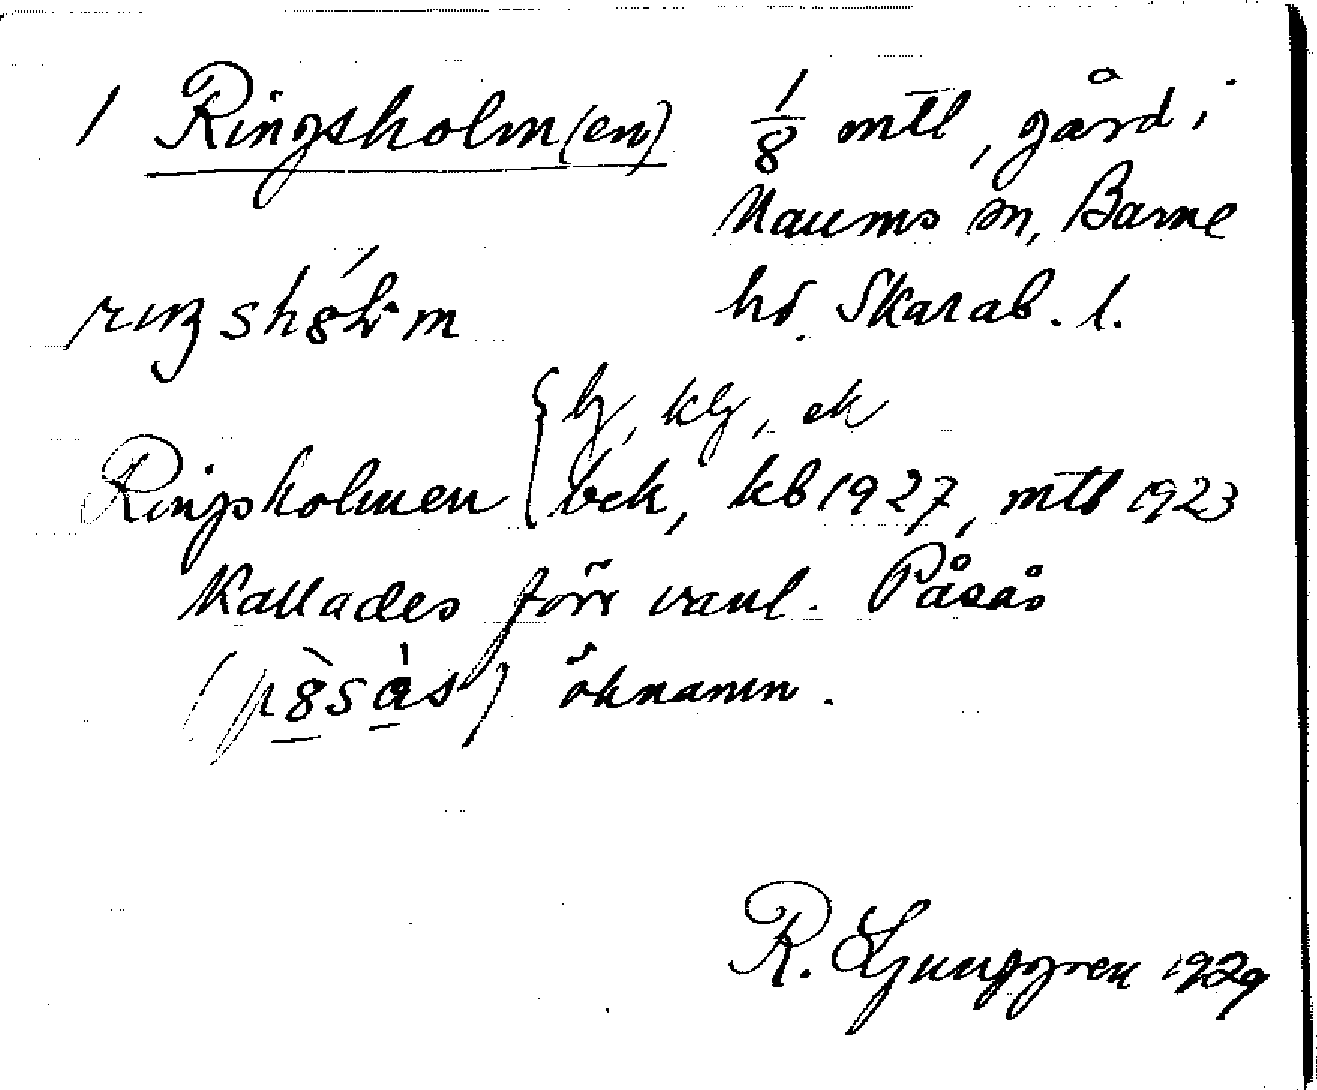 1 Ringsholm(en) 1/8 mtl, gård i
Naums sn, Barne
hd. Skarab. l.
Ringsholmen { bek, kb 1927, mtl 1923
Kallades förr vanl. Påsås
öknamn.
R. Ljunggren 1929